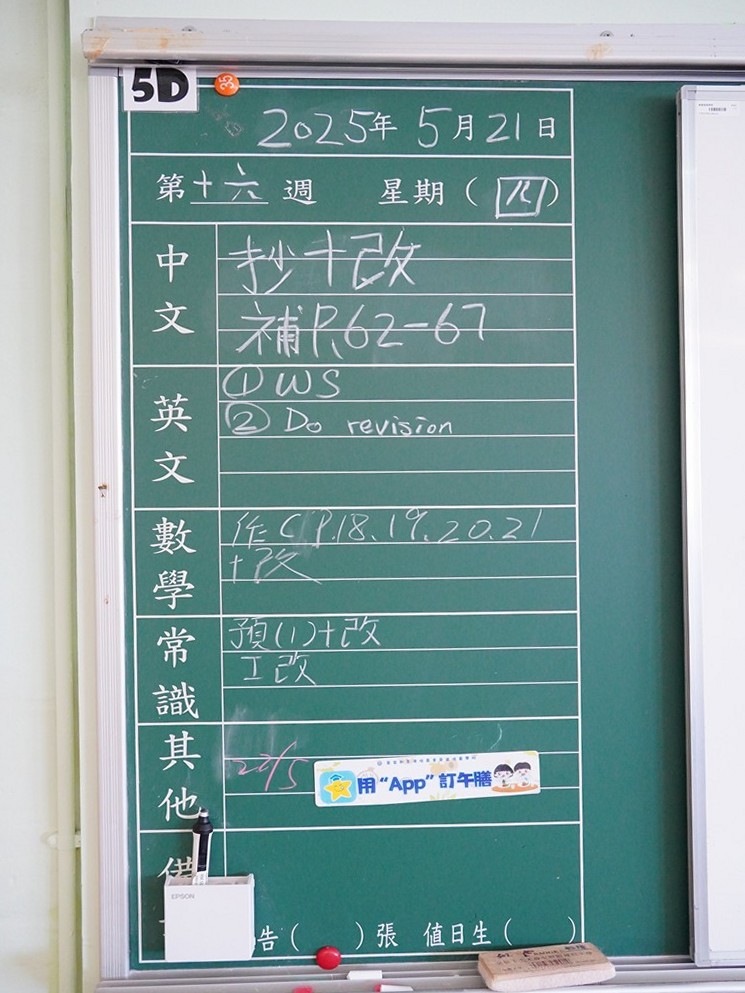 5D
2025年 5月21日
第十六週 星期(四)
中文
抄+改
補P.62-67
英文
① WS
② Do revision
數學
作C P.18、19、20、21
+改
常識
預(1)+改
工改
其他
20/5
用“App”訂午膳
備
EPSON
告( )張 值日生( )